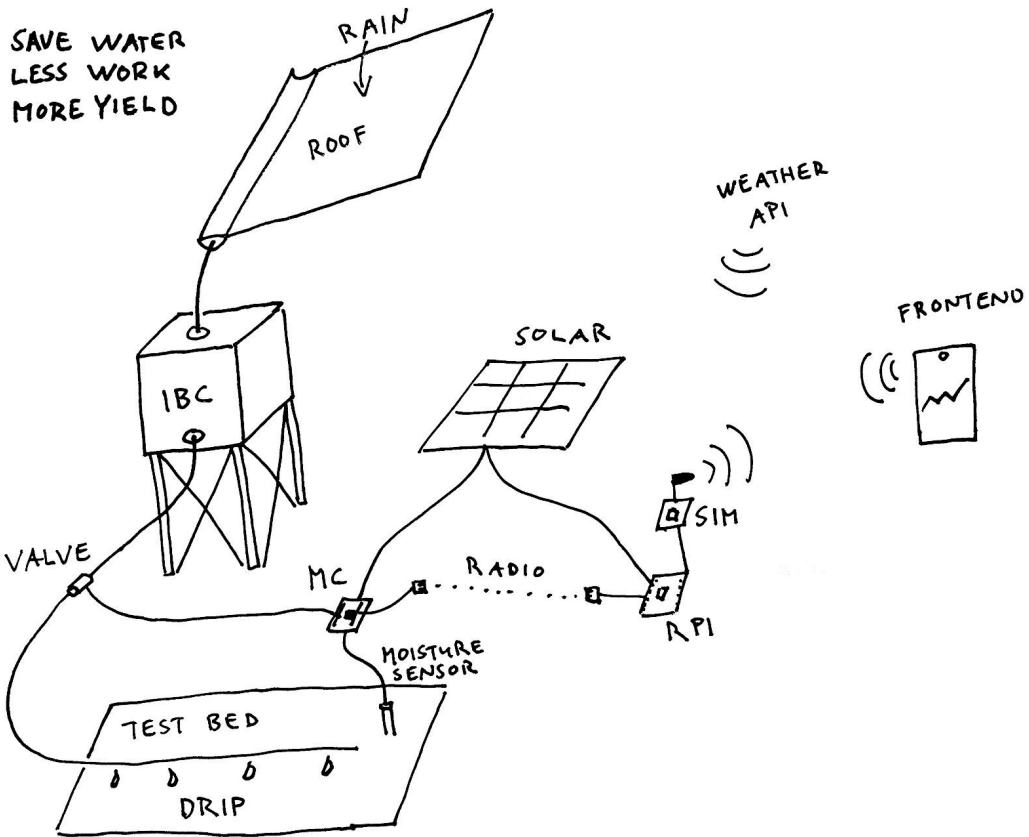 SAVE WATER
LESS WORK
MORE YIELD
RAIN
ROOF
WEATHER
API
FRONTEND
SOLAR
IBC
SIM
VALVE
MC
RADIO
RPI
MOISTURE
SENSOR
TEST BED
DRIP